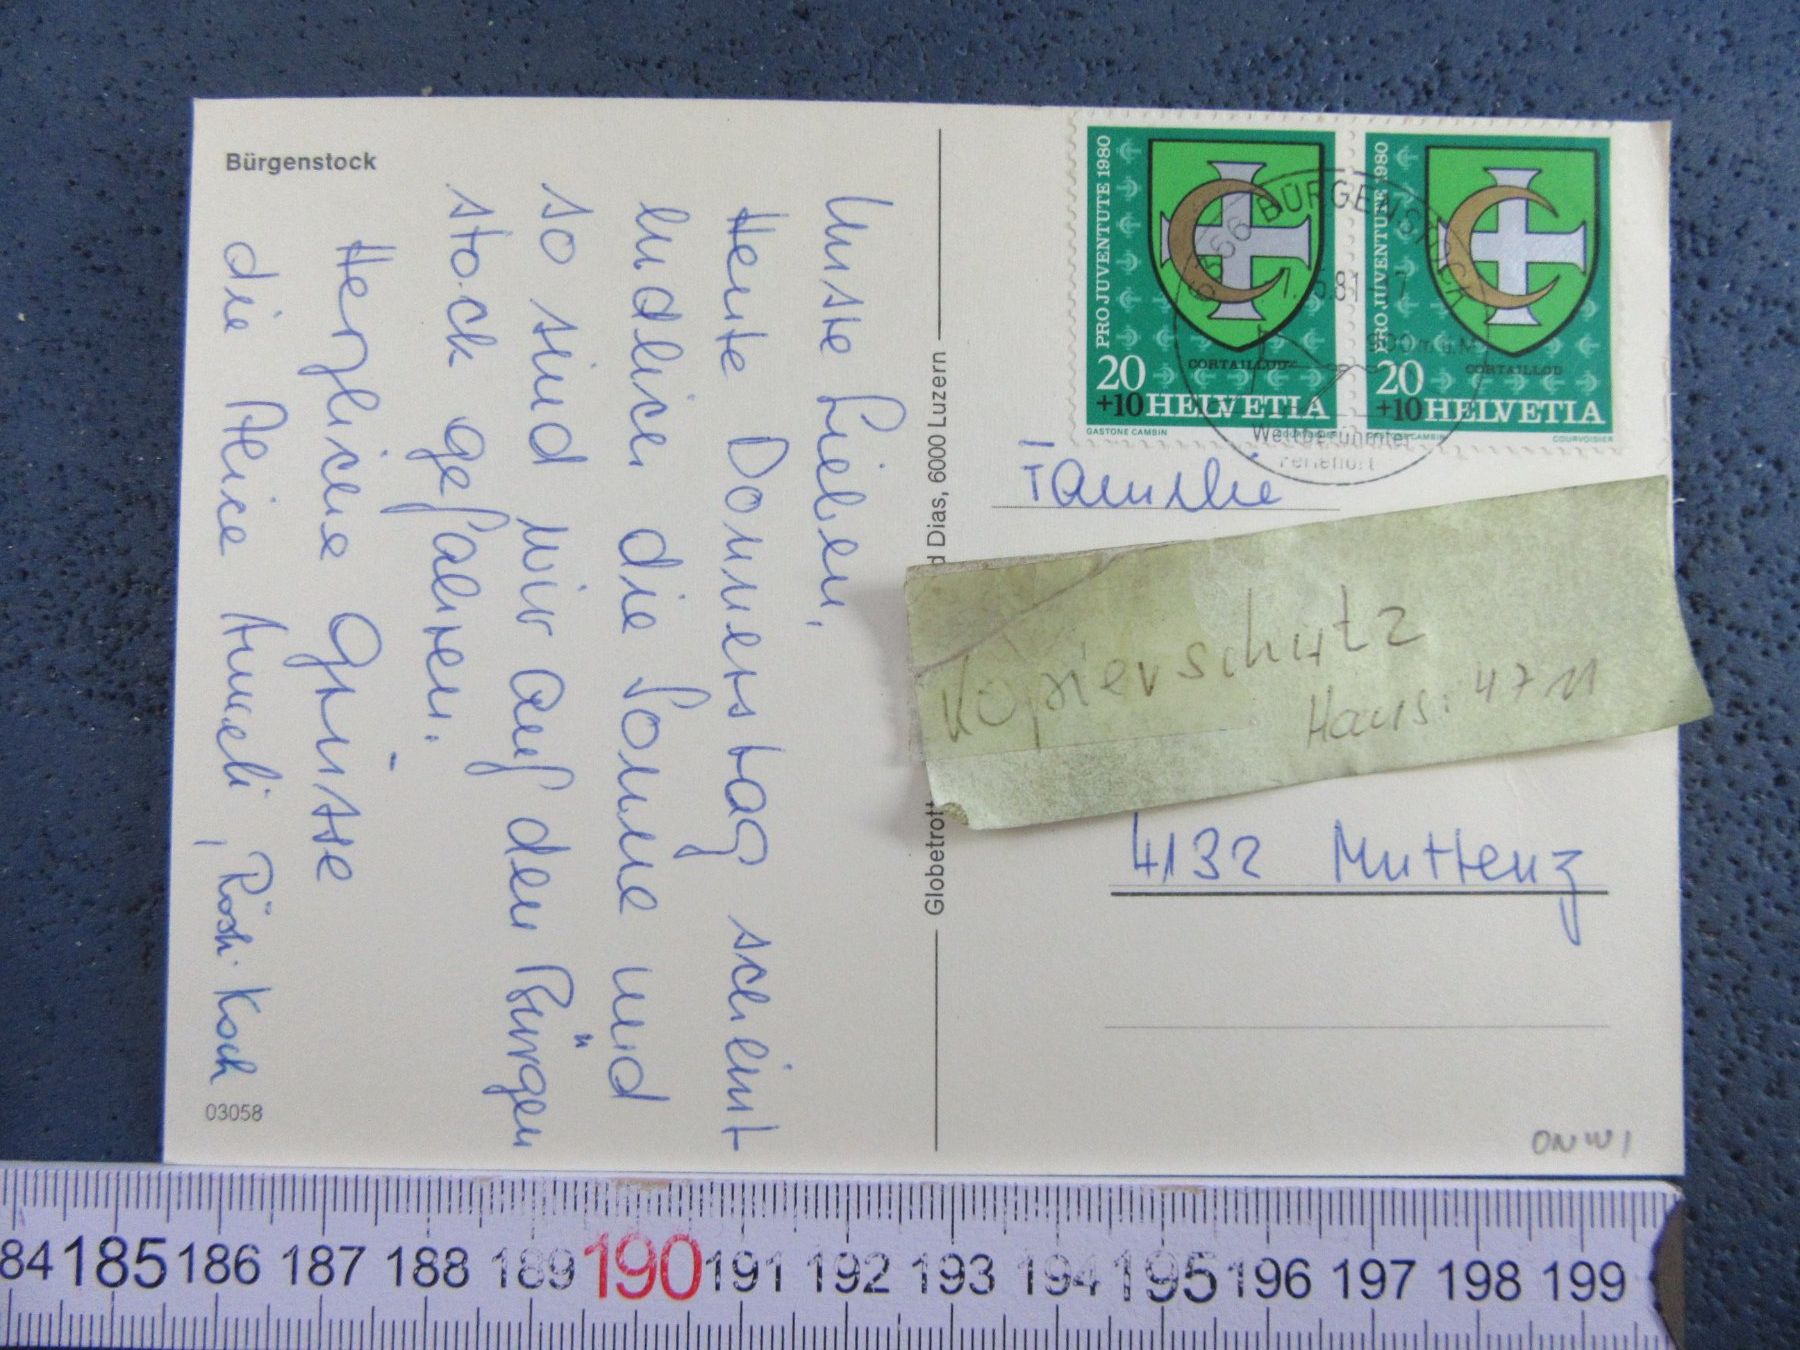 Bürgenstock
Unsre Lieben,
Heute Donnerstag scheint
endlich die Sonne und
so sind wir auf den Bürgen
stock gefahren.
Herzliche Grüsse
die Alice Anneli, Rösli Koch
03058
Globetrott
d Dias, 6000 Luzern
PRO JUVENTUTE 1980
CORTAILLOD
20
+10 HELVETIA
GASTONE CAMBIN
PRO JUVENTUTE 1980
CORTAILLOD
20
+10 HELVETIA
COURVOISIER
BÜRGENSTOCK
81
900 m ü.M.
Weltberühmter
Ferienort
Familie
Kopierschutz
Haus: 4711
4132 Muttenz
ONW1
84 185 186 187 188 189 190 191 192 193 194 195 196 197 198 199